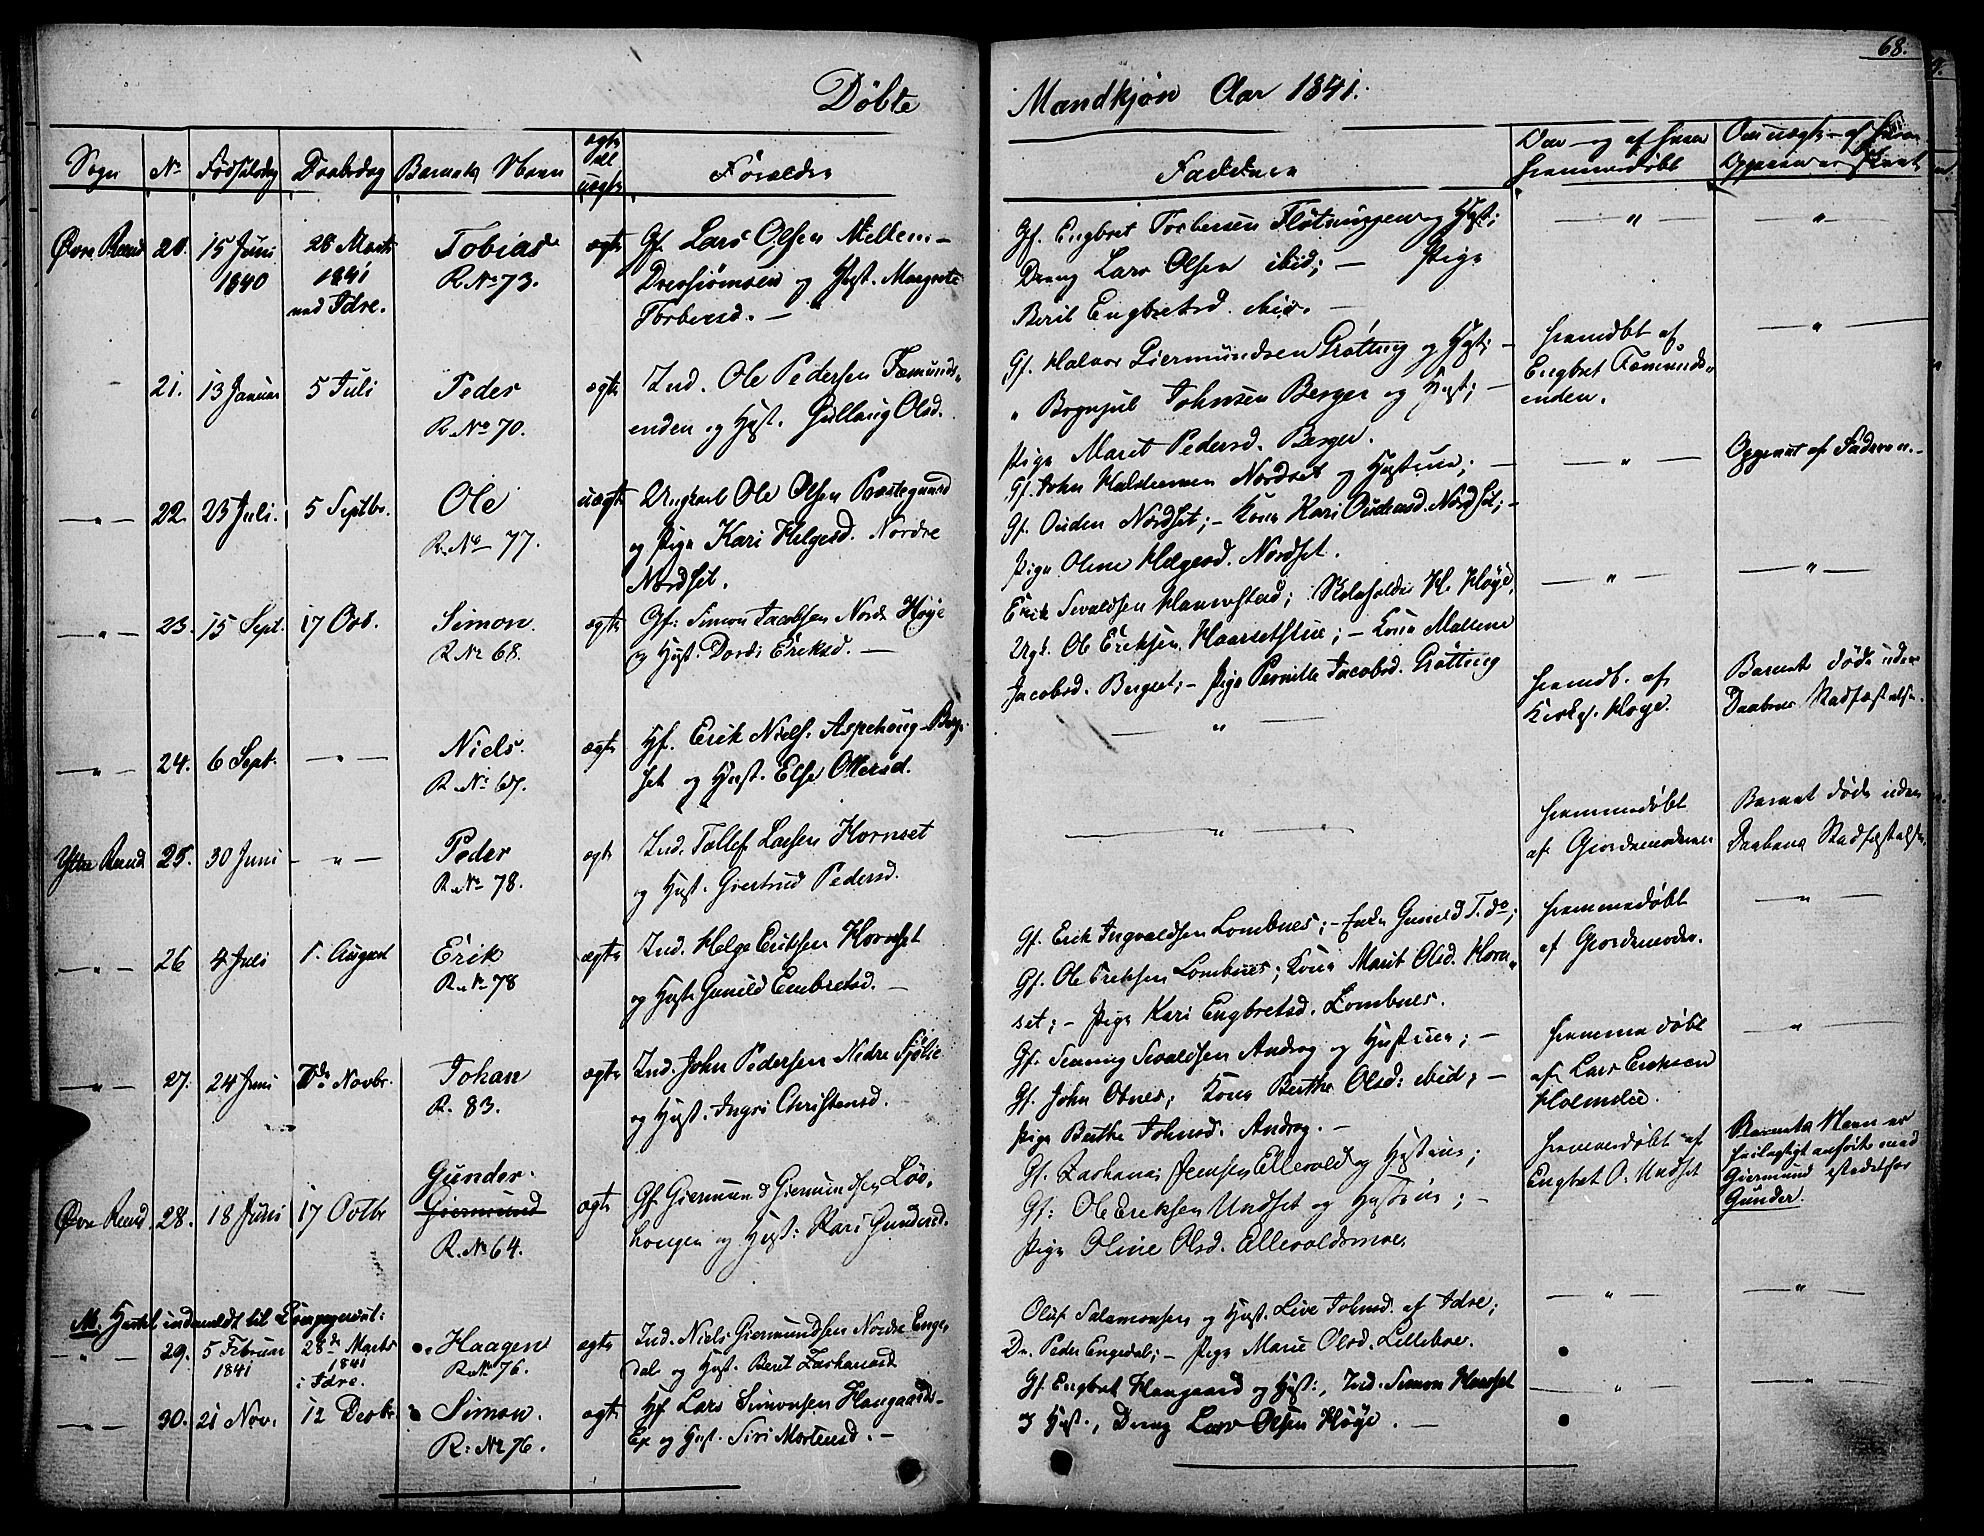 68.
Døbte Mandkjøn Aar 1841.
Sogn No Fødselsdag Daabsdag Barnets Navn ægte Forældre
uægte
Faddere
hjemmedøbt
Øvre Rend 20. 15 Juni 28 Marts Tobias ægte Gf. Lars Olsen Mellem-
1840 1841 R No 73. og Hust. Margrete
ved Idre. Torbersd. —
Gf. Engbret Torbersen Fløtningen og Hust;
Dreng Lars Olsen ibid; — Pige
Berit Engbretsd. ibid. —
21. 13 Januar 5 Juli Peder ægte Ind. Ole Pedersen Fæmunds-
R. No 70. enden og Hust. Gullaug Olsd.
Gf. Halvor Giermundsen Grøtting og Hust; —
" Johnsen Berger og Hust; —
Pige Maret Pedersd. Berger.
hjemdøbt af
Engbret Fæmunds-
enden.
— " — 22. 23 Juli. 5 Septbr. Ole uægte Ungkarl Ole Olsen Præstegaard
R. No 77. og Pige Kari Helgesd. Nordre
Nordset.
Gf. John Haldorsen Nordset og Hustrue; —
Gf. Ouden Nordset; — Kone Kari Oudensd. Nordset; —
Pige Olene Helgesd. Nordset.
Opgivet af Faderen. —
— " — 23. 15 Sept. 17 Oct. Simon. ægte Gf: Simon Jacobsen Nordre Høye
R No 68. og Hust. Dordi Eriksd. —
Erik Sevaldsen Hammerstad; Skoleholder H. Høye,
Ungk. Ole Eriksen Haarsetstue; — Kone Mallene
Jacobsd. Berget; — Pige Pernille Jacobsd. Grøtting
— " — 24. 6 Sept. — " — Niels. ægte Hf. Erik Niels. Aspehoug-Berg-
R. No 67. set og Hust. Else Ottersd.
hjemdb. af
Kirkes. Høye.
Barnet døde uden
Daabens Stadfæstelse.
Ytre Rend 25. 30 Juni — " — Peder ægte Ind. Tollef Larsen Hornset
R. No 78. og Hust. Giertrud Pedersd.
hjemmedøbt
af Giordemoderen
Barnet døde uden
Daabens Stadfæstelse
— " — 26 4 Juli 1. August Erik ægte Ind. Helge Hornset
R. No 78 og Hust. Gunild Embretsd. —
Gf. Erik Ingvaldsen Lombnes; — Enke Gunild T. do;
Gf. Ole Eriksen Lombnes; Kone Marit Olsd. Horn-
set; — Pige Kari Engbretsd. Lombnes.
hjemmedøbt
af Giordemoder.
— " — 27. 24 Juni 7de Novbr. Johan ægte Ind. John Pedersen Nedre Sjølie
R. 83. og Hust. Ingri Christensd.
Gf. Sevaldsen Androg og Hustrue; —
Gf. John Otnes; Kone Berthe Olsd: ibid; —
Pige Berthe Johnsd. Androg. —
hjemmedøbt
af Lars Eriksen
Holmelie.
Øvre Rend. 28. 18 Juni 17 Octbr Gunder. ægte Gf Giermund Giermundsen Løv-
Giermund hougen og Hust: Kari Gundersd.
R. No 64.
Gf. Zakarias Jensen Ellevold og Hustrue;
Gf: Ole Eriksen Undset og Hustrue; —
Pige Oline Olsd. Ellevoldsmoe.
hjemmedøbt af
Engbret O. Undset
Barnets Navn er
feilagtigt anført med
Giermund istedetfor
Gunder.
— " — 29. 5 Februar 28de Marts Haagen ægte Ind. Niels Giermundsen Nordre Enge-
1841 1841 R. No 76. dal og Hust. Beret Zachariasd.
i Idre.
Oluf Salamonsen og Hust. Live Johnsd. af Idre;
Dr. Peder Engedal; — Pige Marie Olsd. Lilleboe.
— " — 30. 21 Nov. 12 Decbr. Simon. ægte Hf Lars Simonsen Haugaards-
R: No 76. Eje og Hust. Siri Mortensd. —
Gf. Engbret Haugaard og Hust:, Ind. Simon Harset
og Hust., Dreng Lars Olsen Høye. —